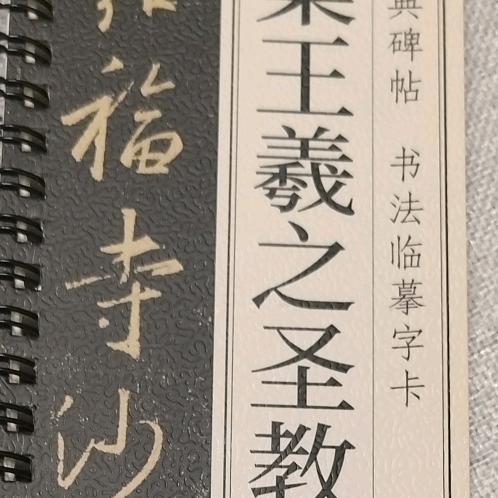 典碑帖 书法临摹字卡
集王羲之圣教
福寺沙